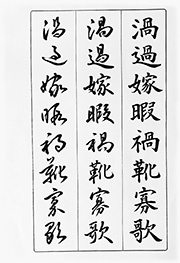 渦過嫁暇禍靴寡歌
渦過嫁暇禍靴寡歌
渦過嫁暇禍靴寡歌